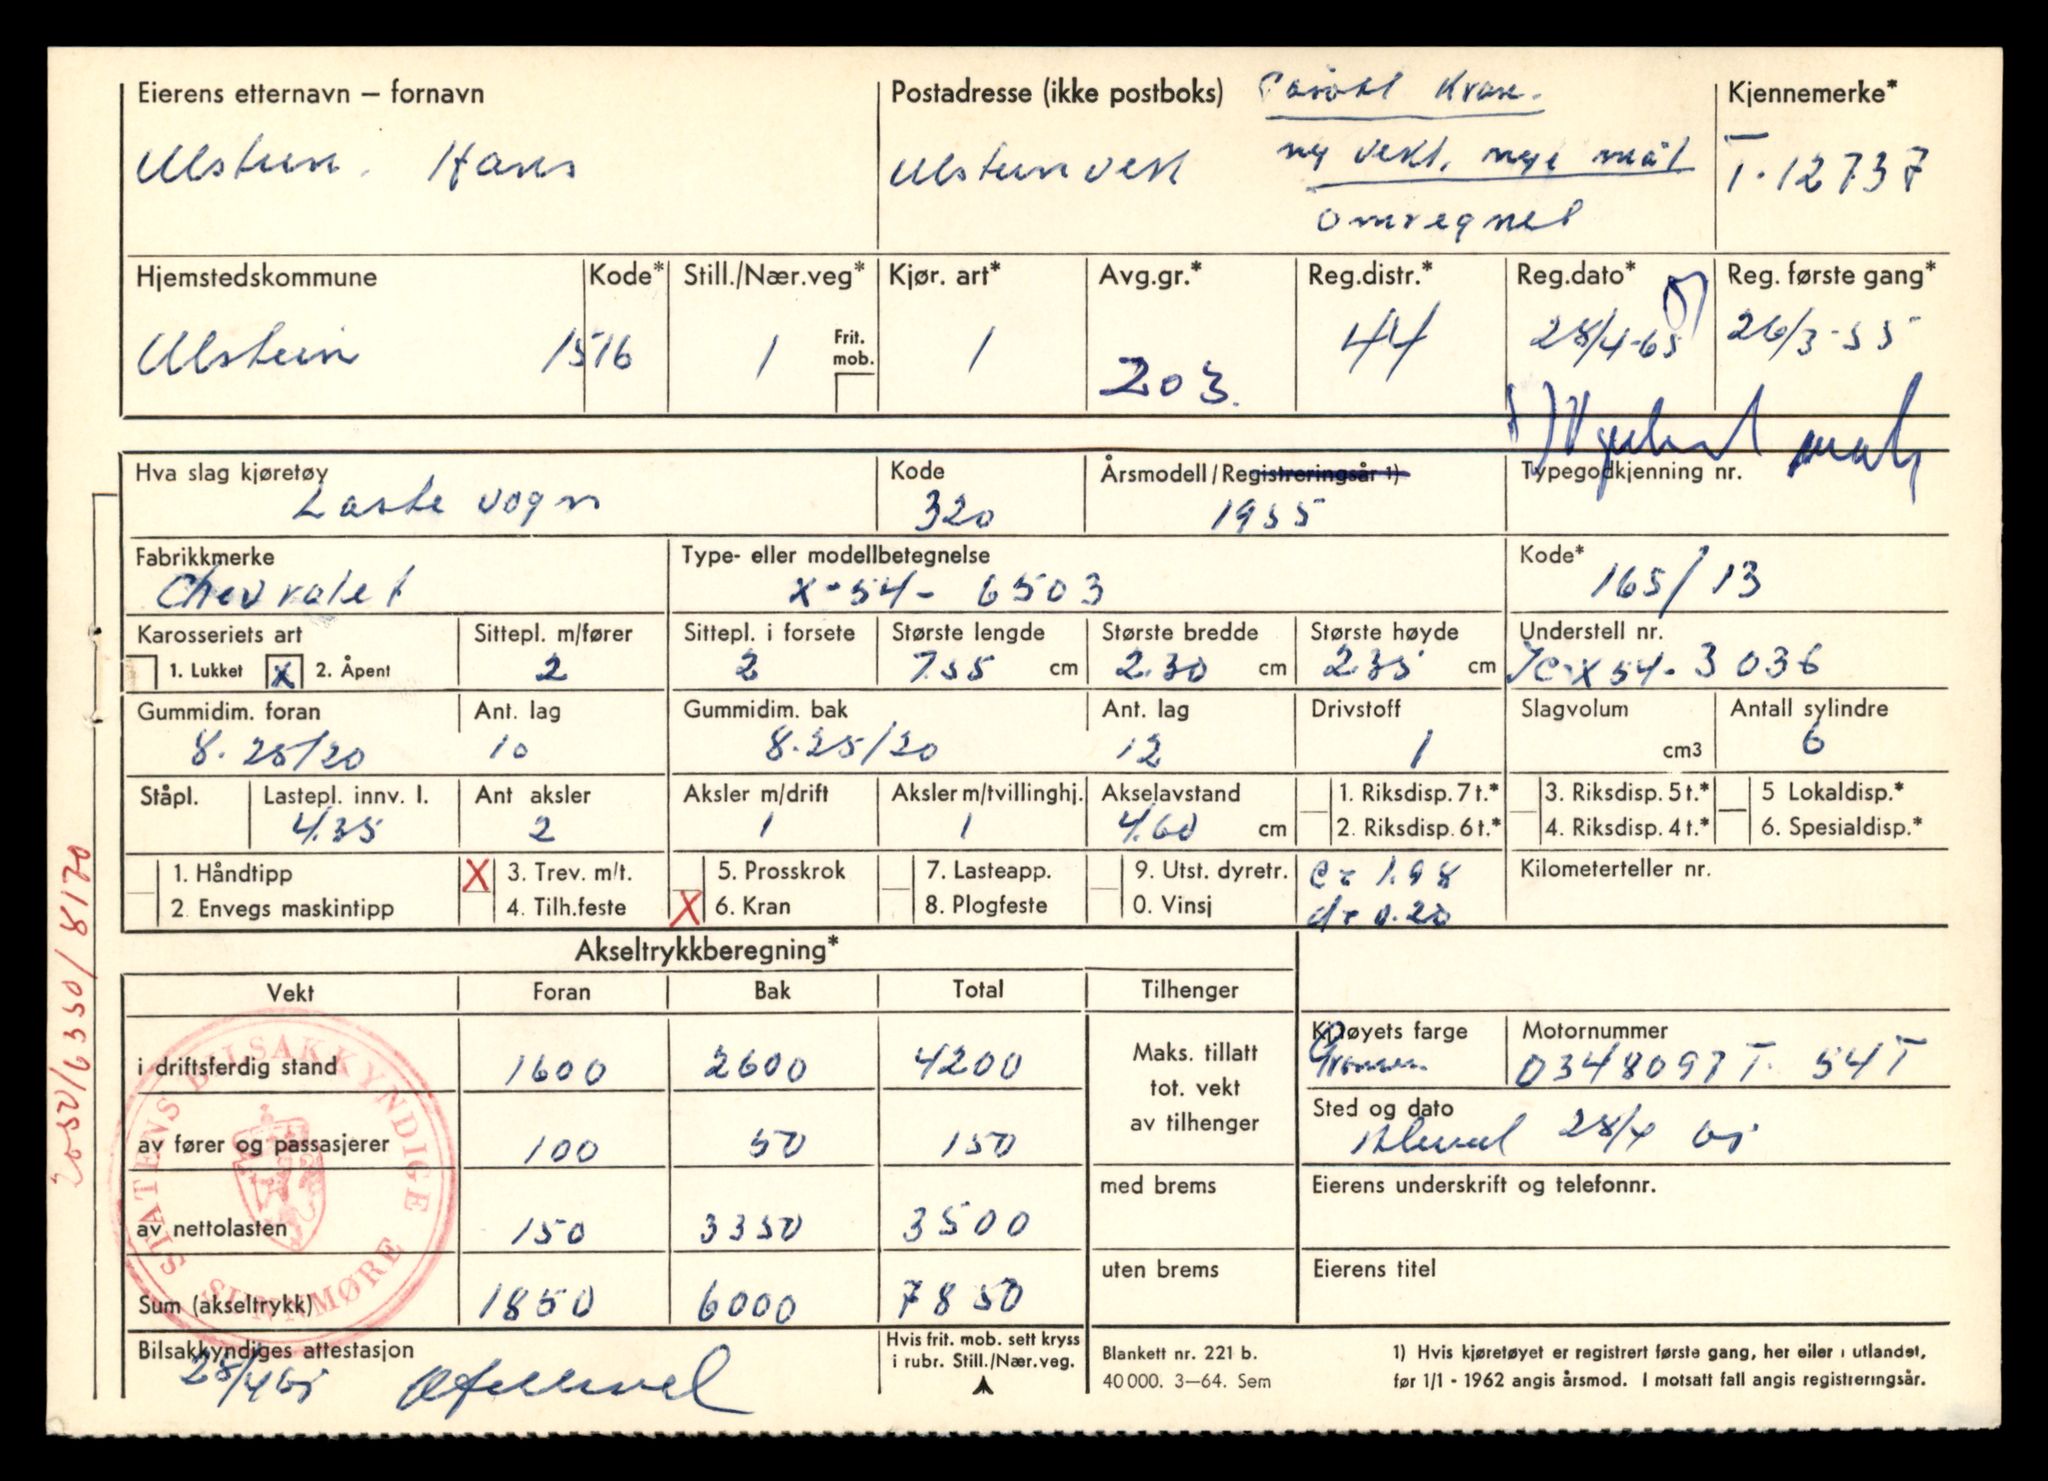 Eierens etternavn – fornavn
Ulstein, Hans
Postadresse (ikke postboks)
Ulsteinvik
Påsatt kran.
ny vekt, nye mål
omregnet
Kjennemerke*
T-12737
Hjemstedskommune
Ulstein
Kode*
1516
Still./Nær.veg*
1
Frit. mob.
Kjør. art*
1
Avg.gr.*
203.
Reg.distr.*
44
Reg.dato*
28/4-65
Reg. første gang*
26/3-55
Hva slag kjøretøy
Lastevogn
Kode
320
Årsmodell/Registreringsår 1)
1955
Typegodkjenning nr.
Fabrikkmerke
Chevrolet
Type- eller modellbetegnelse
X-54- 6503
Kode*
165/13
Karosseriets art
1. Lukket
X 2. Åpent
Sittepl. m/fører
2
Sittepl. i forsete
2
Største lengde
7.55 cm
Største bredde
2.30 cm
Største høyde
2.35 cm
Understell nr.
X54-3036
Gummidim. foran
8.25/20
Ant. lag
10
Gummidim. bak
8.25/20
Ant. lag
12
Drivstoff
1
Slagvolum
cm3
Antall sylindre
6
Ståpl.
Lastepl. innv. l.
4.35
Ant aksler
2
Aksler m/drift
1
Aksler m/tvillinghj.
1
Akselavstand
4.60 cm
1. Riksdisp. 7 t.*
2. Riksdisp. 6 t.*
3. Riksdisp. 5 t.*
4. Riksdisp. 4 t.*
5 Lokaldisp.*
6. Spesialdisp.*
1. Håndtipp
2. Envegs maskintipp
X 3. Trev. m/t.
4. Tilh.feste
5. Prosskrok
X 6. Kran
7. Lasteapp.
8. Plogfeste
9. Utst. dyretr.
0. Vinsj
c = 1.98
d = 0.20
Kilometerteller nr.
Akseltrykkberegning*
Vekt Foran Bak Total Tilhenger
i driftsferdig stand 1600 2600 4200
av fører og passasjerer 100 50 150
av nettolasten 150 3350 3500
Sum (akseltrykk) 1850 6000 7850
Maks. tillatt
tot. vekt
av tilhenger
med brems
uten brems
Kjtøyets farge
Motornummer
0348097 T. 54T
Sted og dato
28/4 65
Eierens underskrift og telefonnr.
Eierens titel
Bilsakkyndiges attestasjon
28/4 65
Hvis frit. mob. sett kryss
i rubr. Still./Nær.veg.
Blankett nr. 221 b.
40 000. 3–64. Sem
1) Hvis kjøretøyet er registrert første gang, her eller i utlandet,
før 1/1 - 1962 angis årsmod. I motsatt fall angis registreringsår.
STATENS BILSAKKYNDIGE
SUNNMØRE
2050/6350/8170